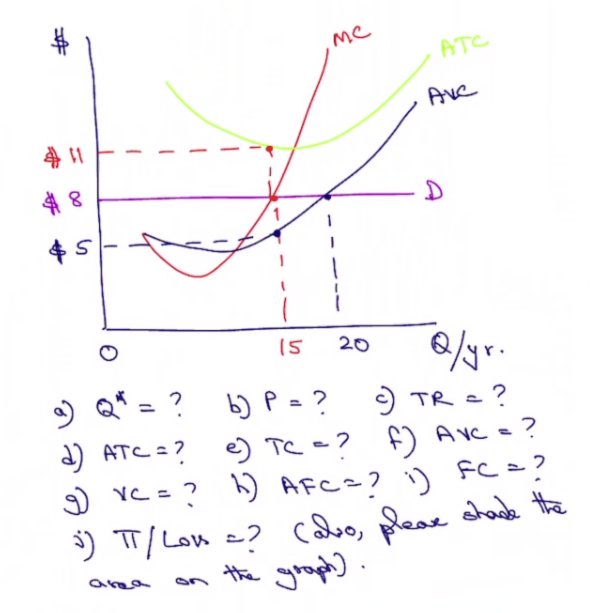 $
MC
ATC
AVC
$ 11
$ 8
D
$ 5
0
15
20
Q/yr.
a) Q* = ? b) P = ? c) TR = ?
d) ATC = ? e) TC = ? f) AVC = ?
g) VC = ? h) AFC = ? i) FC = ?
j) Π/Loss = ? (also, please shade the
area on the graph).